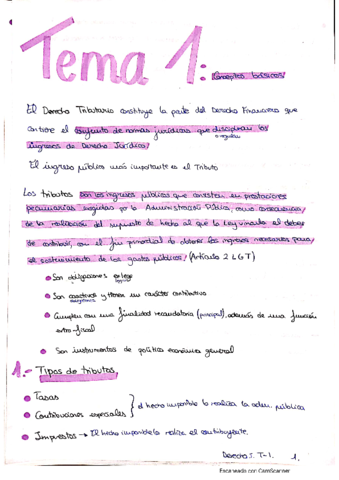 Tema 1: Conceptos básicos
El Derecho Tributario constituye la parte del Derecho Financiero que
contiene el conjunto de normas jurídicas que disciplinan los
ingresos de Derecho Jurídico/
El ingreso público más importante es el Tributo
Los tributos son los ingresos públicos que consisten en prestaciones
pecuniarias exigidas por la Administración Pública, como consecuencia
de la realización del supuesto de hecho al que la Ley vincula el deber
de contribuir, con el fin primordial de obtener los ingresos necesarios para
el sostenimiento de los gastos públicos/ (Artículo 2 LGT)
Son obligaciones ex lege
Son coactivos y tienen un carácter contributivo
Cumplen con una finalidad recaudatoria (principal), además de una función
extra-fiscal
Son instrumentos de política económica general
1.- Tipos de tributos
Tasas
Contribuciones especiales } el hecho imponible lo realiza la adm. pública
Impuestos → El hecho imponible lo realiza el contribuyente.
Derecho T-1. 1.
Escaneado con CamScanner